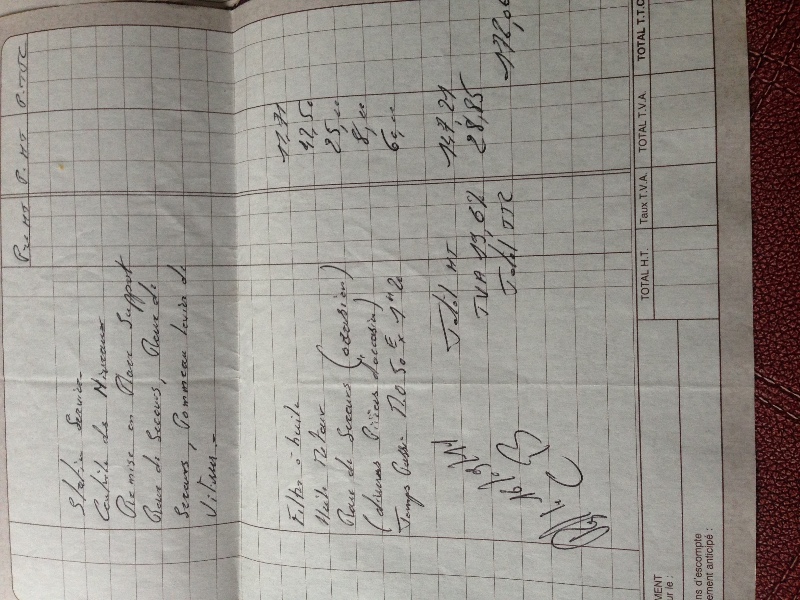 Pu HT P. HT P. TTC
Station Service
Contrôle des Niveaux
Remise en Place Support
Roue de Secours, Roue de
Secours, Pommeau levier de
Vitesse
Filtre à huile 11,71
Huile Moteur 42,50
Roue de Secours (occasion) 25,00
(diverses Pièces d'occasion) 8,00
Temps Passé 50 € x 1 H 20 60,00
Total HT 147,21
TVA 19,6% 28,85
Total TTC 176,06
TOTAL H.T. Taux T.V.A. TOTAL T.V.A. TOTAL T.T.C
MENT
ur le :
ns d'escompte
ement anticipé :